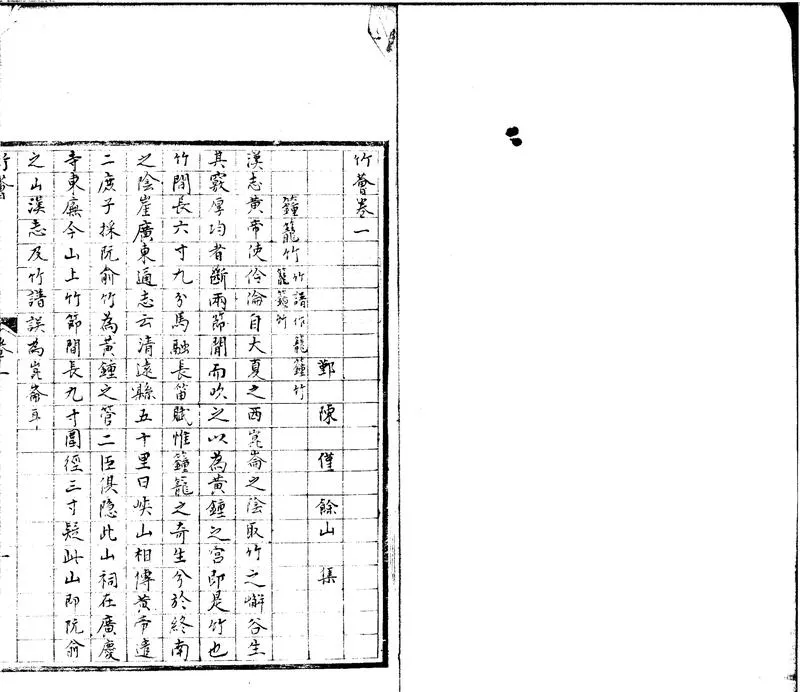 竹薈卷一
鄞陳僅餘山集
籦籠竹竹譜作籠籦竹
籠籦竹
漢志黃帝使伶淪自大夏之西崑崙之陰取竹之嶰谷生
其竅厚均者斷兩節間而吹之以為黃鍾之宮即是竹也
竹間長六寸九分馬融長笛賦惟籦籠之奇生兮於終南
之陰崖廣東通志云清遠縣五十里曰峽山相傳黃帝遣
二庶子採阮俞竹為黃鍾之管二臣俱隱此山祠在廣慶
寺東廡今山上竹節間長九寸圍徑三寸疑此山即阮俞
之山漢志及竹譜誤為崑崙耳
竹薈
卷一
一